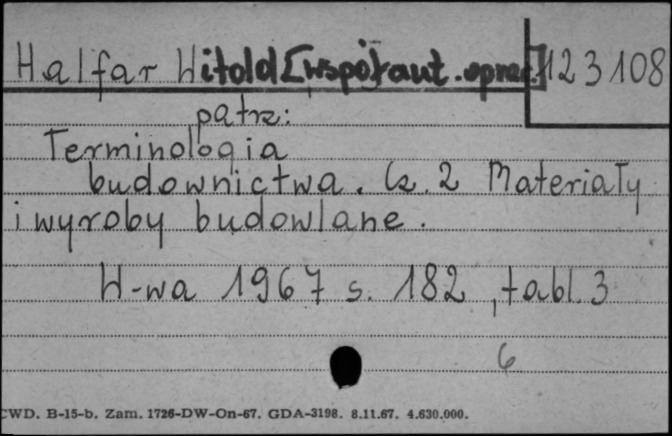 Halfar Witold [współaut. oprac.] 123108
patrz:
Terminologia
budownictwa. Cz. 2 Materiały
i wyroby budowlane.
W-wa 1967 s. 182, tabl. 3
6
CWD. B-15-b. Zam. 1726-DW-On-67. GDA-3198. 8.11.67. 4.630.000.